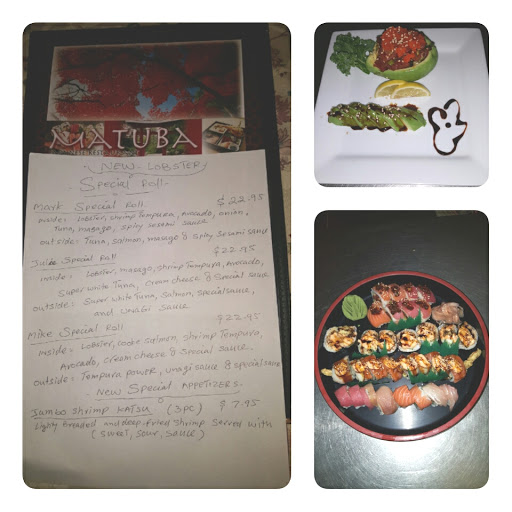 MATUBA
NEW LOBSTER
Special Roll
Mark Special Roll $22.95
inside: Lobster, shrimp Tempura, Avocado, onion,
Tuna, masago, spicy sesami sauce
outside: Tuna, salmon, masago & spicy sesami sauce
Julie Special Roll $22.95
inside: Lobster, masago, shrimp Tempura, Avocado,
Super white Tuna, cream cheese & special sauce
outside: Super white Tuna, Salmon, special sauce,
and unagi sauce
Mike Special Roll $22.95
inside: Lobster, cooke salmon, shrimp Tempura,
Avocado, cream cheese & special sauce
outside: Tempura power, unagi sauce & special sauce
- NEW Special APPETIZERS -
Jumbo shrimp KATSU (3pc) $7.95
Lightly breaded and deep-fried shrimp served with
(sweet, sour, sauce)